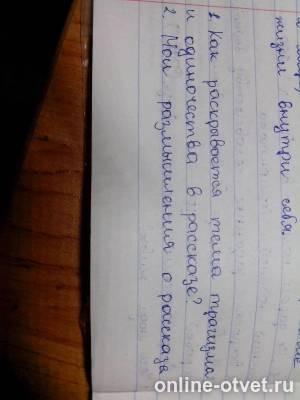 жизни внутри себя.
1. Как раскрывается тема трагизма
и одиночества в рассказе?
2. Мои размышления о рассказа
online-otvet.ru